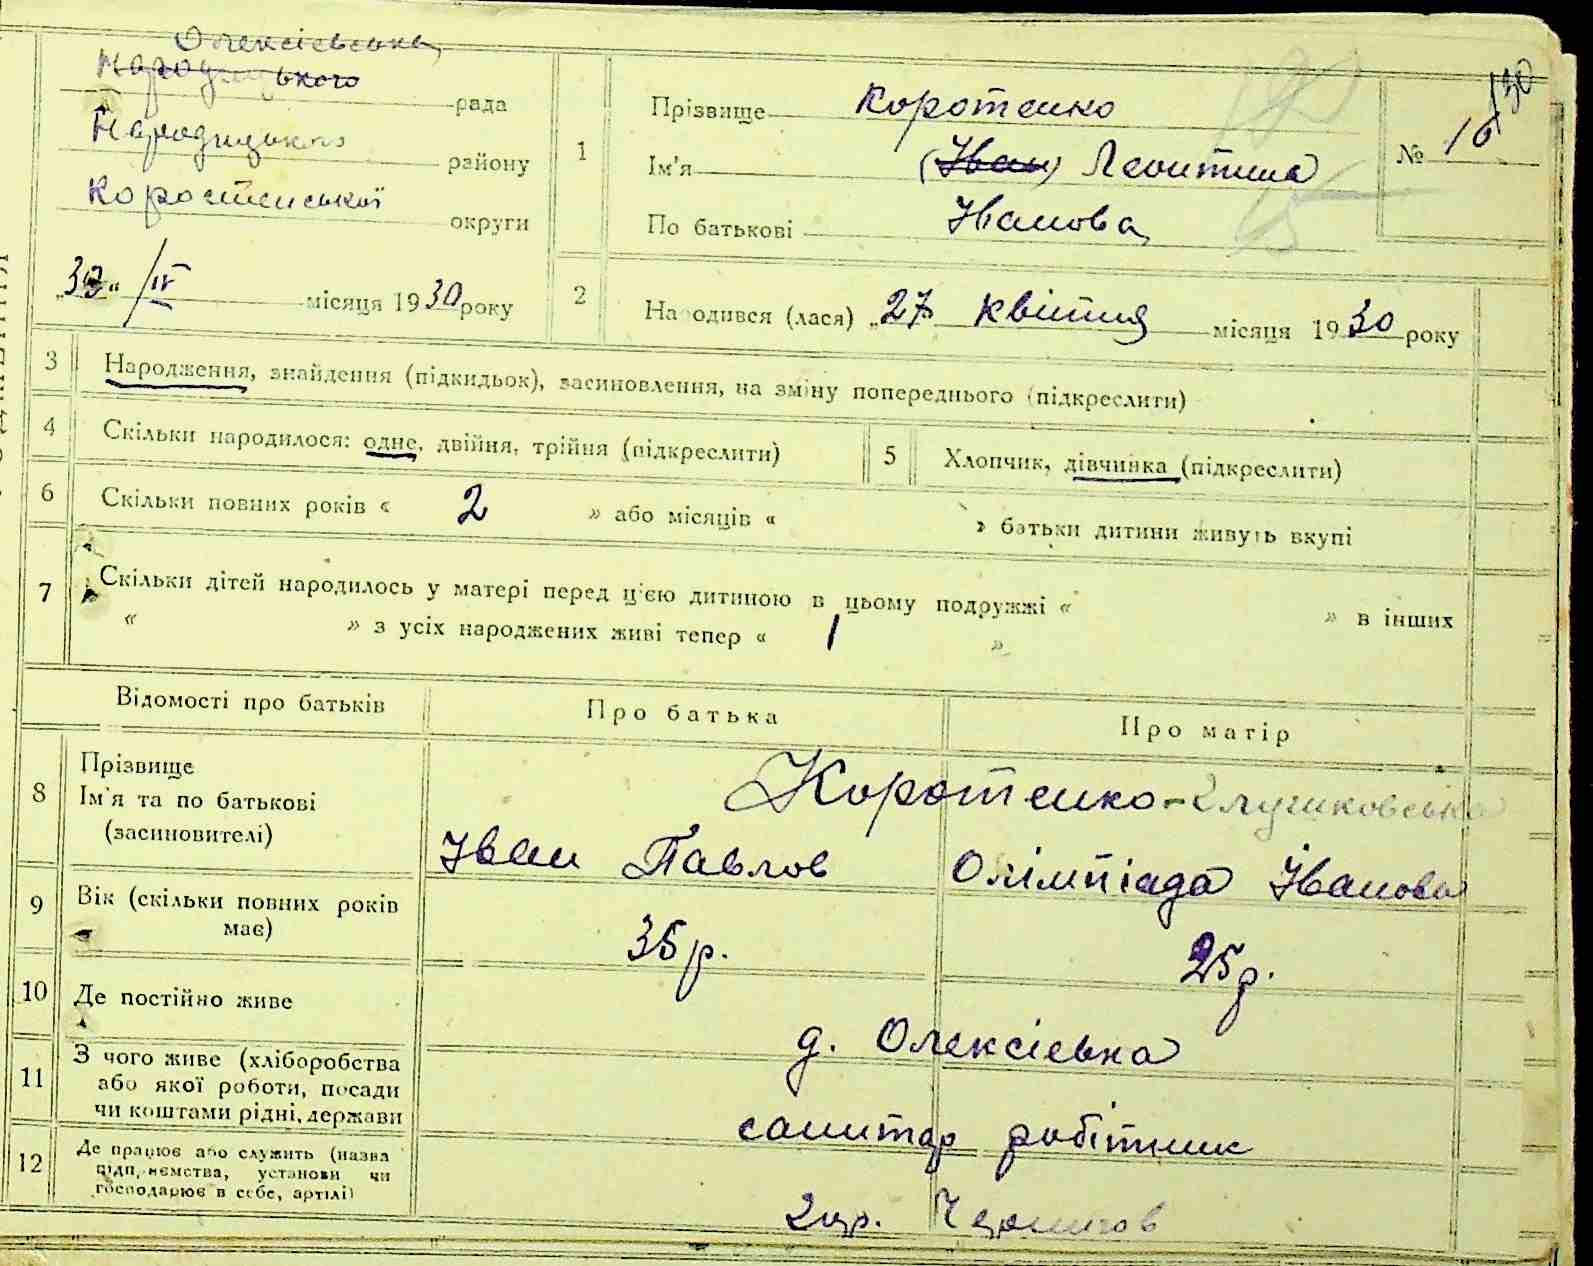 Олексієвська
Народицького рада
Народицького району
Коростенської округи
„30“ /IV місяця 1930 року
1
Прізвище Коротенко
Ім'я (Іван) Леонтина
По батькові Іванова
№ 16
130
2
Народився (лася) „27 квітня місяця 1930 року
3 Народження, знайдення (підкидьок), засиновлення, на зміну попереднього (підкреслити)
4 Скільки народилося: одне, двійня, трійня (підкреслити)
5 Хлопчик, дівчинка (підкреслити)
6 Скільки повних років « 2 » або місяців « » батьки дитини живуть вкупі
7 Скільки дітей народилось у матері перед ц'єю дитиною в цьому подружжі « » в інших
« » з усіх народжених живі тепер « 1 »
Відомості про батьків Про батька Про матір
8 Прізвище
Ім'я та по батькові
(засиновителі)
Коротенко-
Іван Павлов Олімпіада Іванова
9 Вік (скільки повних років
має)
35 р. 25 р.
10 Де постійно живе
д. Олексієвка
11 З чого живе (хліборобства
або якої роботи, посади
чи коштами рідні, держави
санитар робітник
12 Де працює або служить (назва
підприємства, установи чи
господарює в себе, артілі)
Чернигов